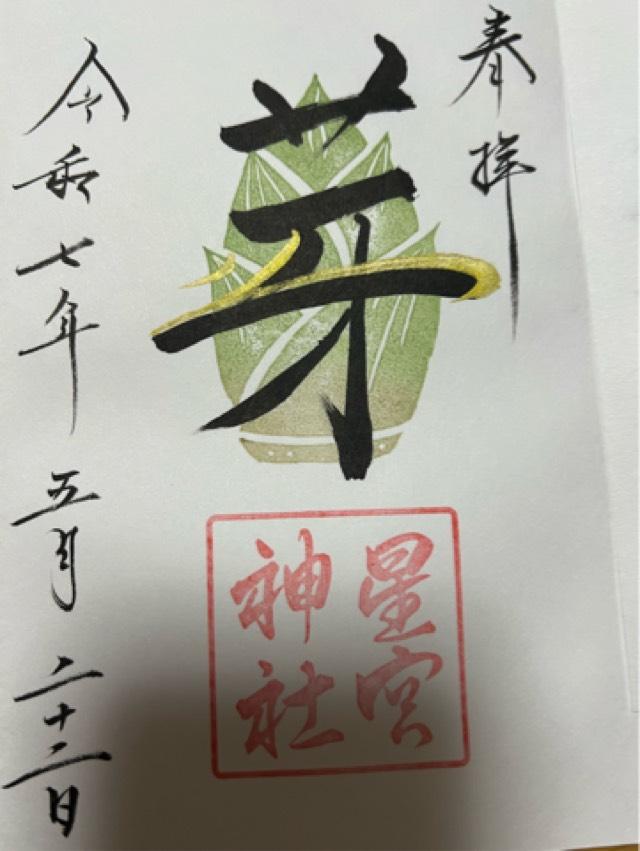 奉拝
芽
星宮
神社
令和七年五月二十二日